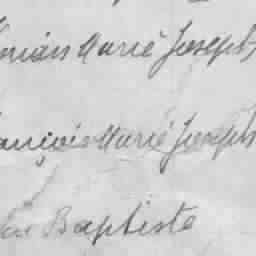 Marie Joseph
François Marie Joseph
Baptiste